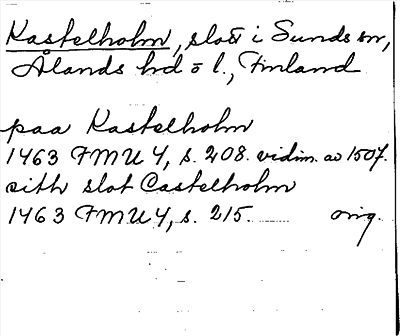 Kastelholm, slott i Sunds sn,
Ålands hd o l., Finland
paa Kastelholm
1463 FMU 4, s. 208. vidim. av 1507.
sith slot Castelholm
1463 FMU 4, s. 215. orig.